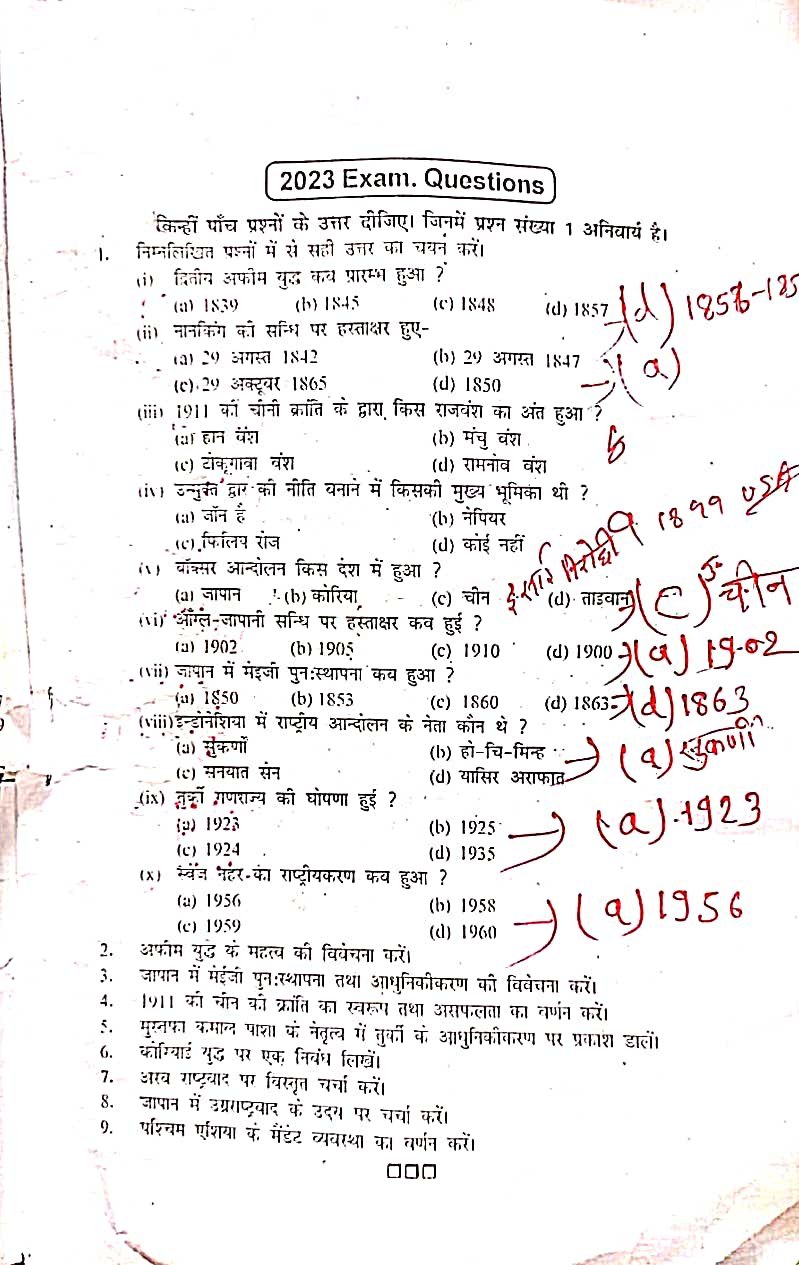 2023 Exam. Questions
किन्हीं पाँच प्रश्नों के उत्तर दीजिए। जिनमें प्रश्न संख्या 1 अनिवार्य है।
1. निम्नलिखित प्रश्नों में से सही उत्तर का चयन करें।
(i) द्वितीय अफीम युद्ध कब प्रारम्भ हुआ ?
(a) 1839 (b) 1845 (c) 1848 (d) 1857 (d)
(ii) नानकिंग की सन्धि पर हस्ताक्षर हुए-
(a) 29 अगस्त 1842 (b) 29 अगस्त 1847 (a)
(c) 29 अक्टूबर 1865 (d) 1850
(iii) 1911 की चीनी क्रांति के द्वारा किस राजवंश का अंत हुआ ?
(a) हान वंश (b) मंचु वंश b
(c) टोकूगावा वंश (d) रामनोव वंश
(iv) उन्मुक्त द्वार की नीति बनाने में किसकी मुख्य भूमिका थी ?
(a) जॉन हे (b) नेपियर 1899 USA
(c) फिलिप रोज (d) कोई नहीं
(v) बॉक्सर आन्दोलन किस देश में हुआ ?
(a) जापान (b) कोरिया (c) चीन (d) ताइवान (c) चीन
(vi) आँग्ल-जापानी सन्धि पर हस्ताक्षर कब हुई ?
(a) 1902 (b) 1905 (c) 1910 (d) 1900 (a) 1902
(vii) जापान में मेइजी पुन:स्थापना कब हुआ ?
(a) 1850 (b) 1853 (c) 1860 (d) 1863 (d) 1863
(viii) इन्डोनेशिया में राष्ट्रीय आन्दोलन के नेता कौन थे ?
(a) सुकर्णो (b) हो-चि-मिन्ह (a) सुकर्णो
(c) सनयात सेन (d) यासिर अराफात
(ix) तुर्की गणराज्य की घोषणा हुई ?
(a) 1923 (b) 1925 (a) 1923
(c) 1924 (d) 1935
(x) स्वेज नहर का राष्ट्रीयकरण कब हुआ ?
(a) 1956 (b) 1958 (a) 1956
(c) 1959 (d) 1960
2. अफीम युद्ध के महत्व की विवेचना करें।
3. जापान में मेईजी पुन:स्थापना तथा आधुनिकीकरण की विवेचना करें।
4. 1911 की चीन की क्रांति का स्वरूप तथा असफलता का वर्णन करें।
5. मुस्तफा कमाल पाशा के नेतृत्व में तुर्की के आधुनिकीकरण पर प्रकाश डालें।
6. कोरियाई युद्ध पर एक निबंध लिखें।
7. अरब राष्ट्रवाद पर विस्तृत चर्चा करें।
8. जापान में उग्रराष्ट्रवाद के उदय पर चर्चा करें।
9. पश्चिम एशिया के मैंडेट व्यवस्था का वर्णन करें।